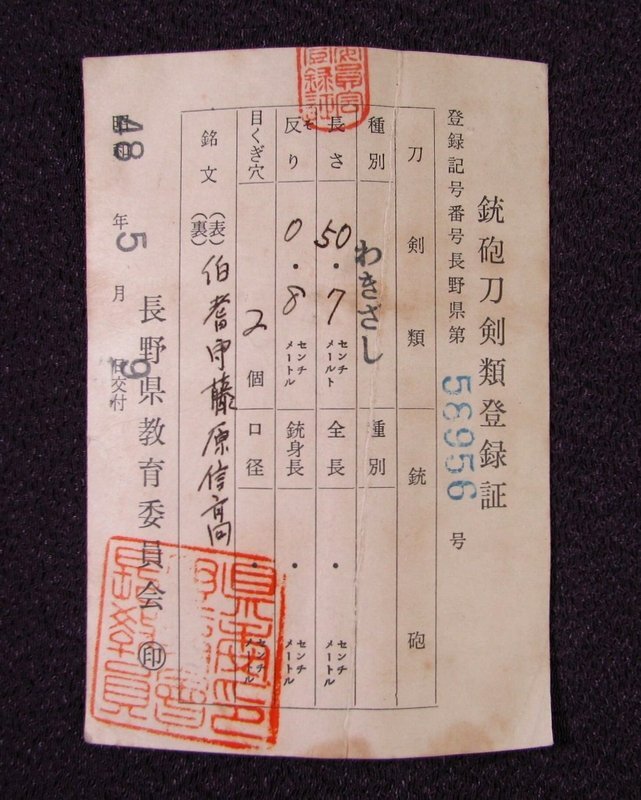 銃砲刀剣類登録証
登録記号番号長野県第 58956 号
刀剣類 銃砲
種別 わきざし 種別
長さ 50・7 センチメートル 全長 ・ センチメートル
反り 0・8 センチメートル 銃身長 ・ センチメートル
目くぎ穴 2個 口径 ・ センチメートル
銘文 (表) 伯耆守藤原信高
(裏)
長野県教育委員会 印
昭和48年5月9日交付